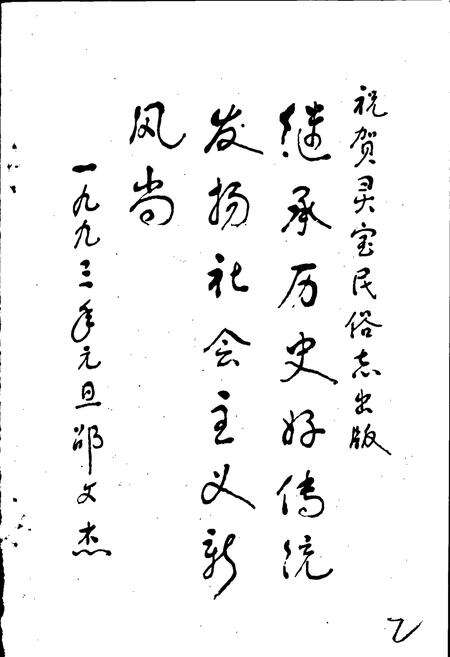 祝贺灵宝民俗志出版
继承历史好传统
发扬社会主义新
风尚
一九九三年元旦邵文杰